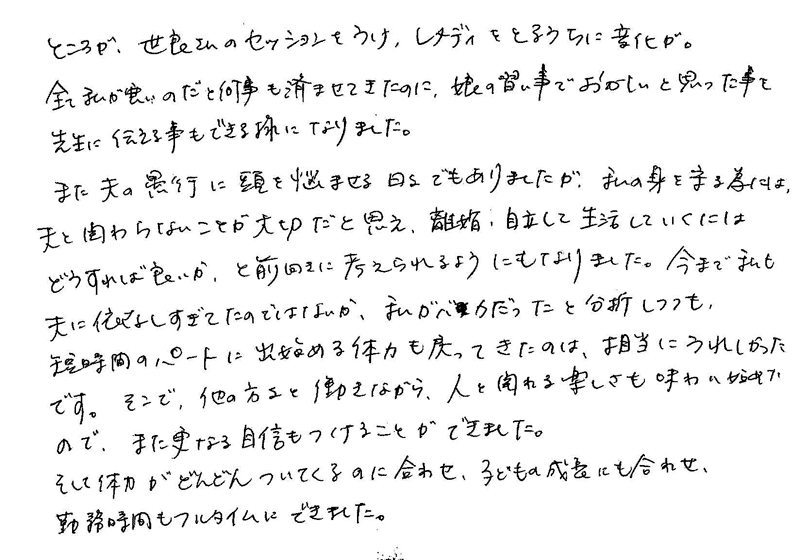 ところが、世良さんのセッションをうけ、レメディをとるうちに変化が。
全て私が悪いのだと何事も済ませてきたのに、娘の習い事でおかしいと思った事を
先生に伝える事もできる様になりました。
また夫の愚行に頭を悩ませる日々でもありましたが、私の身を守る為には、
夫と関わらないことが大切だと思え、離婚、自立して生活していくには
どうすれば良いか、と前向きに考えられるようにもなりました。今まで私も
夫に依存しすぎてたのではないか、私がバカだったと分析しつつも、
短時間のパートに出始める体力も戻ってきたのは、相当にうれしかった
です。そこで、他の方々と働きながら、人と関れる楽しさも味わい始めた
ので、また更なる自信もつけることができました。
そして体力がどんどんついてくるのに合わせ、子どもの成長にも合わせ、
勤務時間もフルタイムにできました。